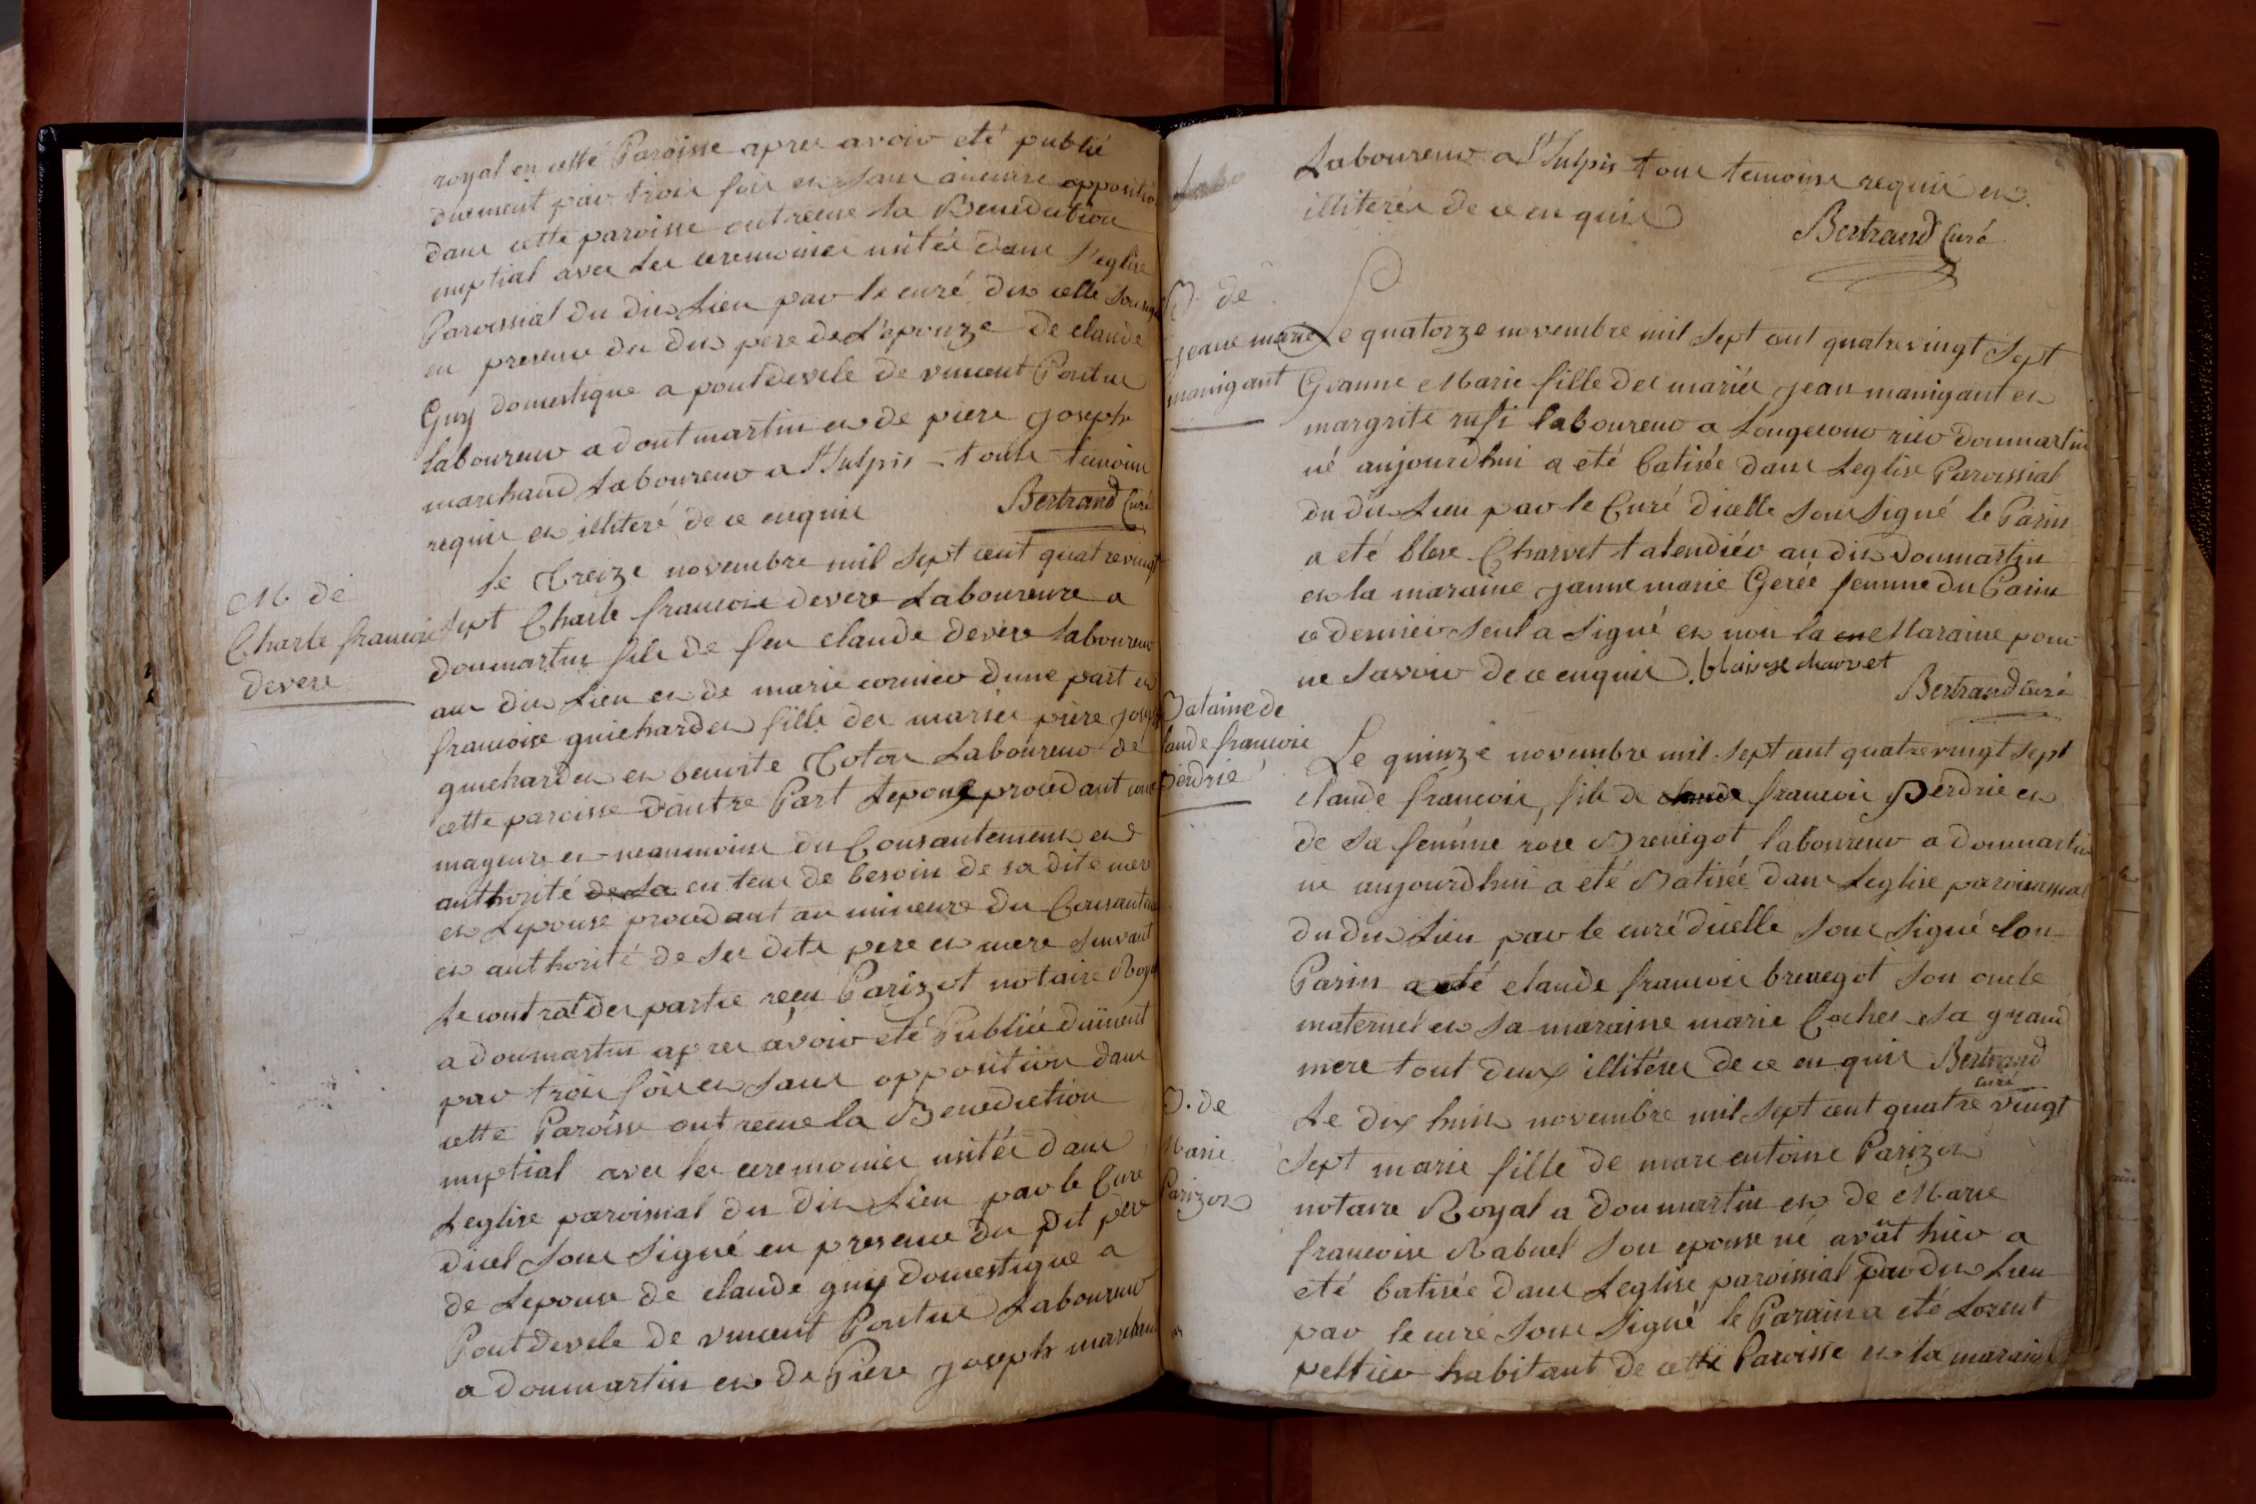 royal en cette Paroisse apres avoir eté publié
duement par trois fois et sans aucune oppositio
dans cette paroisse ont recue la Benediction
nuptial avec les ceremonies usitée dans l'eglise
Paroissial du dit Lieu par le curé dicelle Sousigné
en presence du dit pere de L'epouze de claude
Guy domestique a pontdevele de vincent Pontus
laboureur a dontmartin et de piere joseph
marchand Laboureur a St Sulpis tous temoins
requis et illiteré de ce enquis Bertrand Curé
M. de
Charle francois
devere
le Treize novembre mil sept cent quatrevingt
sept Charle francois devere Laboureure a
donmartin fils de feu claude devere laboureur
au dit Lieu et de marie cornier d'une part et
francoise guichardet fille des mariés piere joseph
guichardet et benoite Toton Laboureur de
cette paroisse d'autre Part Lepoux procedant come
mageure et neanmoins du Consantement et
authorité de La en tems de besoin de sa dite mere
et Lepouse procedant au mineure du Consantem
et authorité de ses dits pere et mere suivant
le contrat des partie reçu Parizot notaire Roya
a donmartin apres avoir eté Publiée duiment
par trois fois et sans opposition dans
cette Paroisse ont recue la Benediction
nuptial avec les ceremonies usitées dans
Leglise paroissial du dit Lieu par le Cure
dicel Sous Signé en presence du Dit per
de Lepouse de claude guy domestique a
Pontdevele de vincent Pontus Laboureur
a donmartin et de Piere joseph marchand
Labo
Laboureur a St Sulpis tous temoins requis et
illiterés de ce enquis
Bertrand Curé
B. de
jeane marie
manigant
Le quatorze novembre mil sept cent quatrevingt sept
Geanne Marie fille des mariés jean manigant et
margrite rufi laboureur a Longecour rier donmartin
né aujourdhui a eté batisée dans Leglise Paroissial
du dit Lieu par le Curé dicelle Sous Signé le Parin
a eté blese Charvet tatendiér au dit donmartin
et la maraine janne marie Gerée femme du Parin
ce dernier Seul a Signé et non la en Maraine pour
ne Savoir de ce enquis. blaise charvet
Bertrand curé
Bataime de
laude francois
Perdrie
Le quinze novembre mil sept cent quatrevingt sept
claude francois, fils de claude francois Perdrie et
de sa femme rose Brenigot laboureur a donmartin
ne aujourdhui a eté Batisée dans Leglise paroissial
du dit Lieu par le curé dicelle Sous Signé Son
Parin a eté claude francois brenegot son oncle
maternel et Sa maraine marie Cochet Sa grand
mere tout deux illitérés de ce enquis Bertrand
curé
B. de
Marie
Parizot
Le dix huit novembre mil sept cent quatre vingt
Sept marie fille de marc entoine Parizot
notaire Royal a donmartin et de Marie
francoise Rabuel Son epouse né avant hier a
eté batisée dans Leglise paroissial du dit Lieu
par le curé Sous Signé le Parain a eté Lorent
peltier habitant de cette Paroisse et la maraine